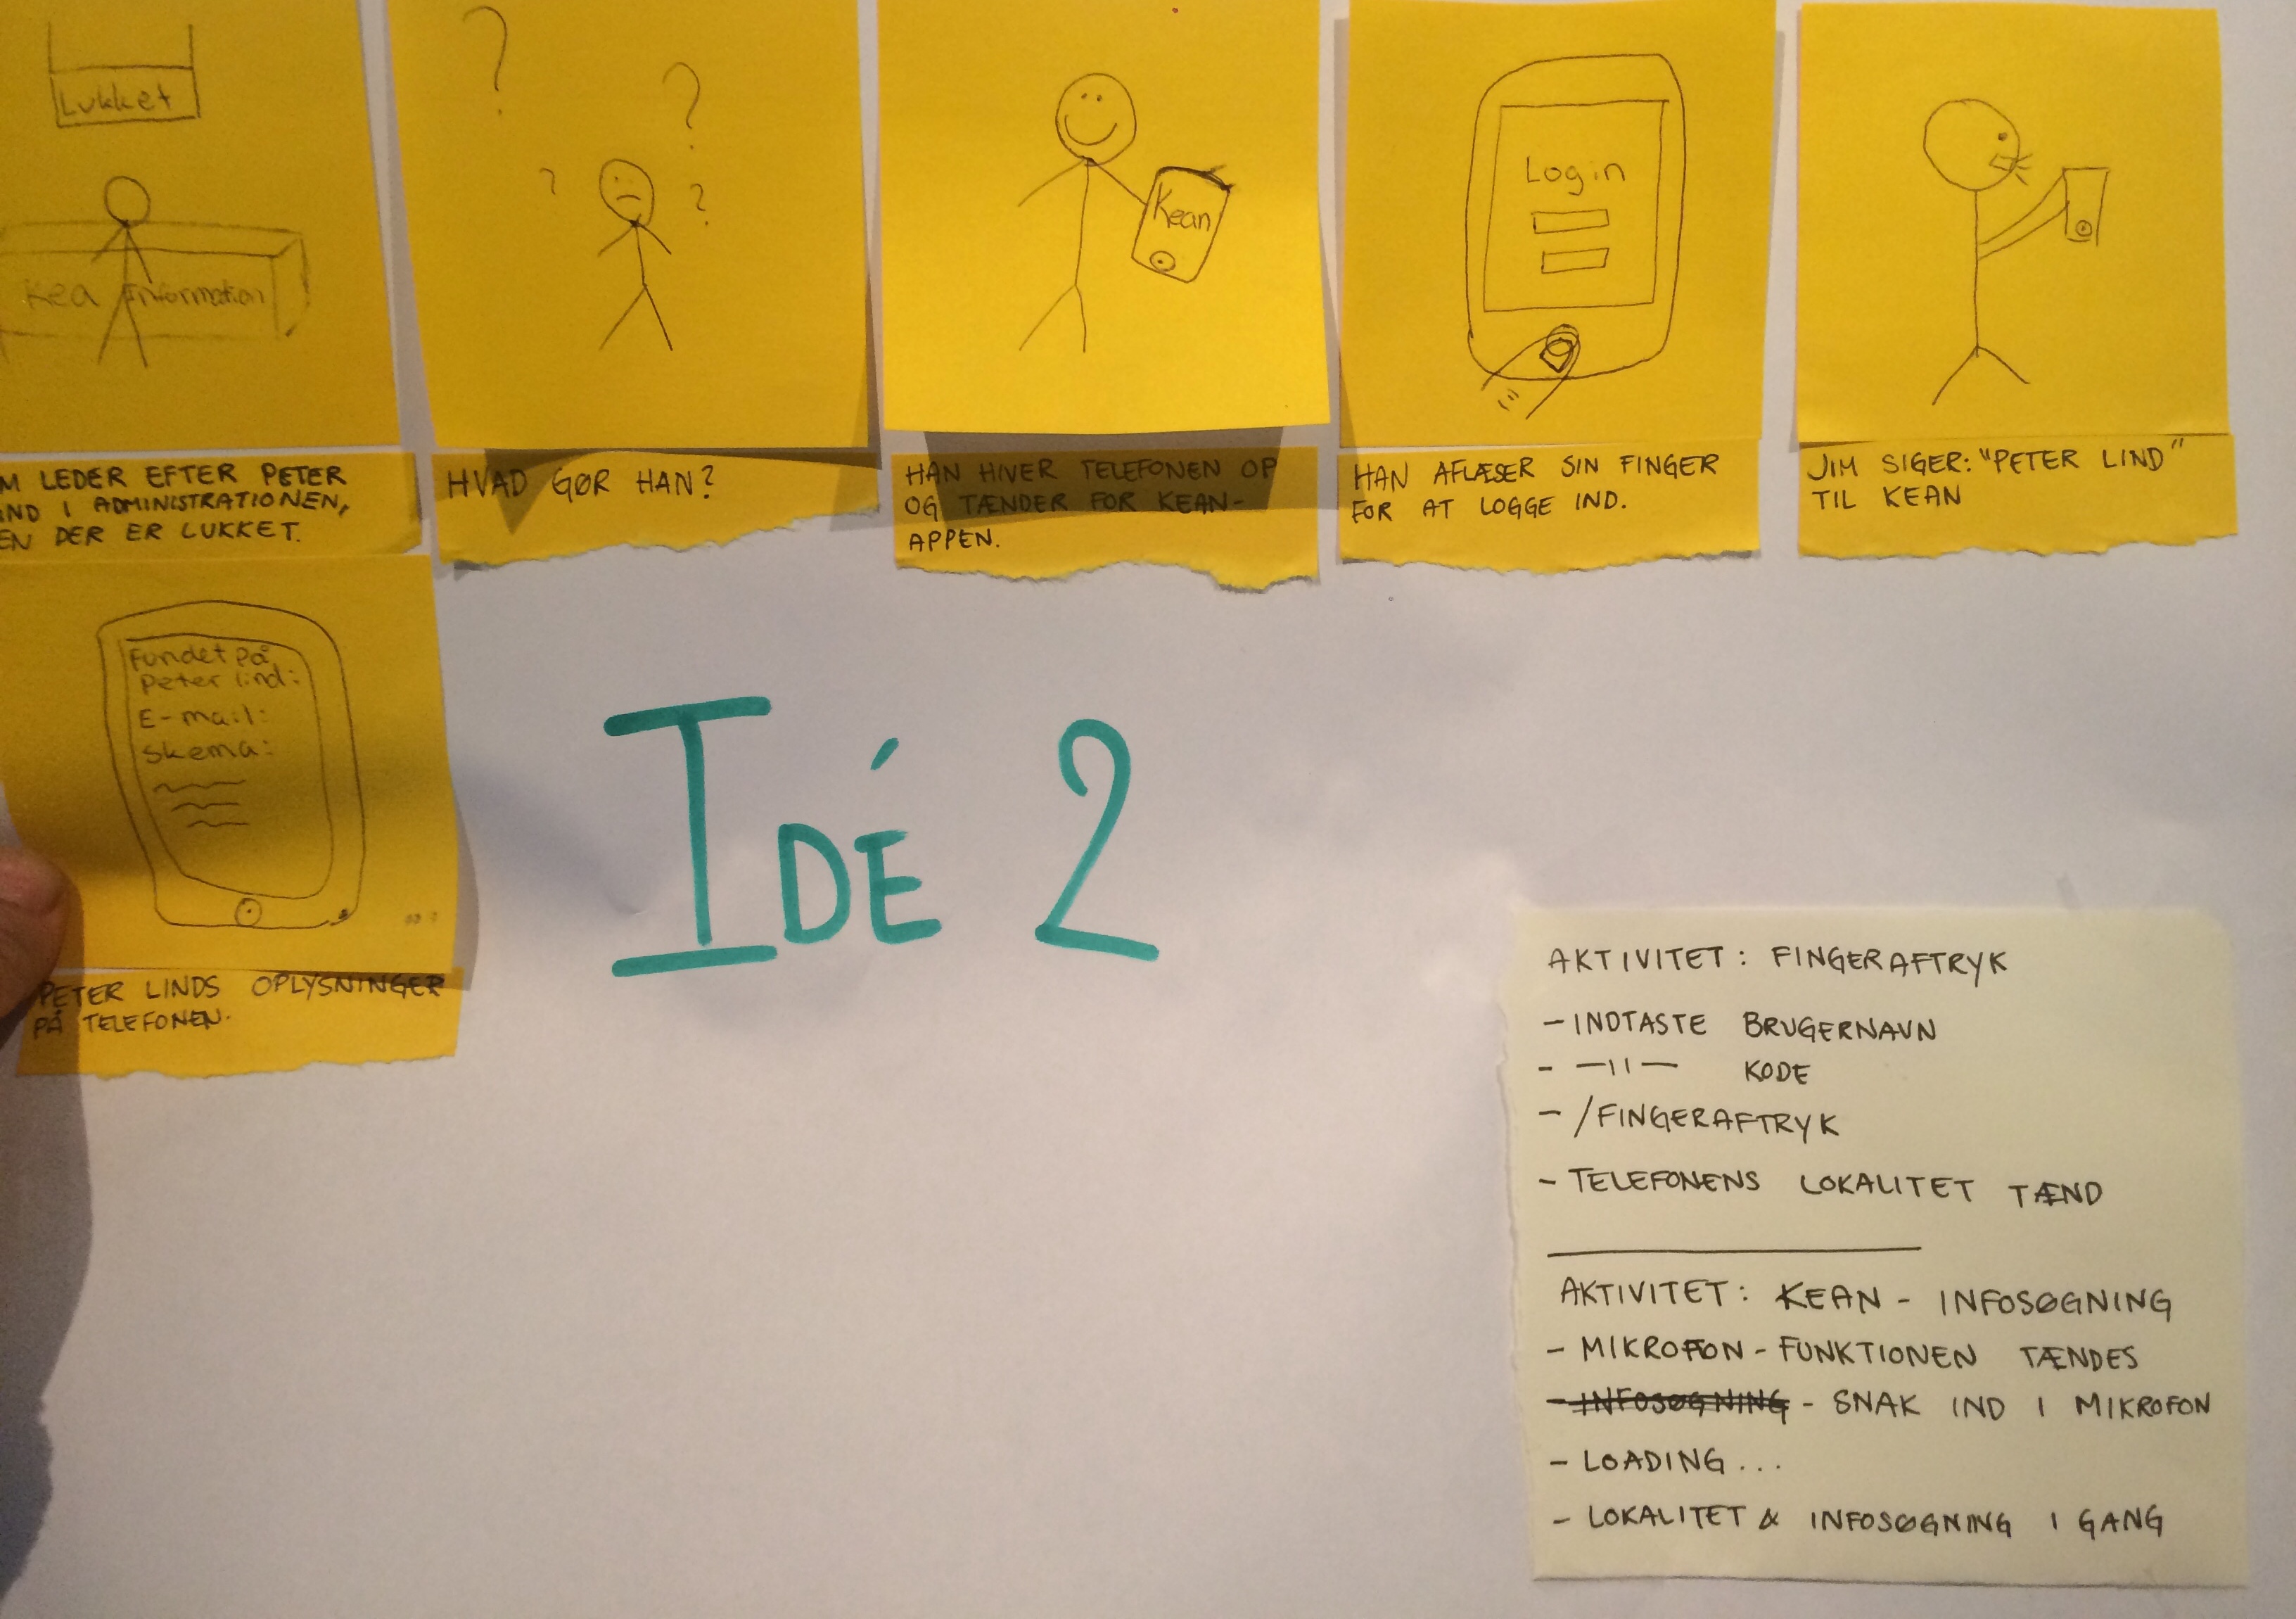 Lukket
Kea Information
M LEDER EFTER PETER
IND I ADMINISTRATIONEN,
EN DER ER LUKKET.
? ? ? ?
HVAD GØR HAN?
Kean
HAN HIVER TELEFONEN OP
OG TÆNDER FOR KEAN-
APPEN.
Login
HAN AFLÆSER SIN FINGER
FOR AT LOGGE IND.
JIM SIGER: "PETER LIND"
TIL KEAN
Fundet på
Peter lind:
E-mail:
Skema:
PETER LINDS OPLYSNINGER
PÅ TELEFONEN.
IDÉ 2
AKTIVITET: FINGERAFTRYK
- INDTASTE BRUGERNAVN
- —11— KODE
- /FINGERAFTRYK
- TELEFONENS LOKALITET TÆND
AKTIVITET: KEAN - INFOSØGNING
- MIKROFON-FUNKTIONEN TÆNDES
- INFOSØGNING - SNAK IND I MIKROFON
- LOADING...
- LOKALITET & INFOSØGNING I GANG